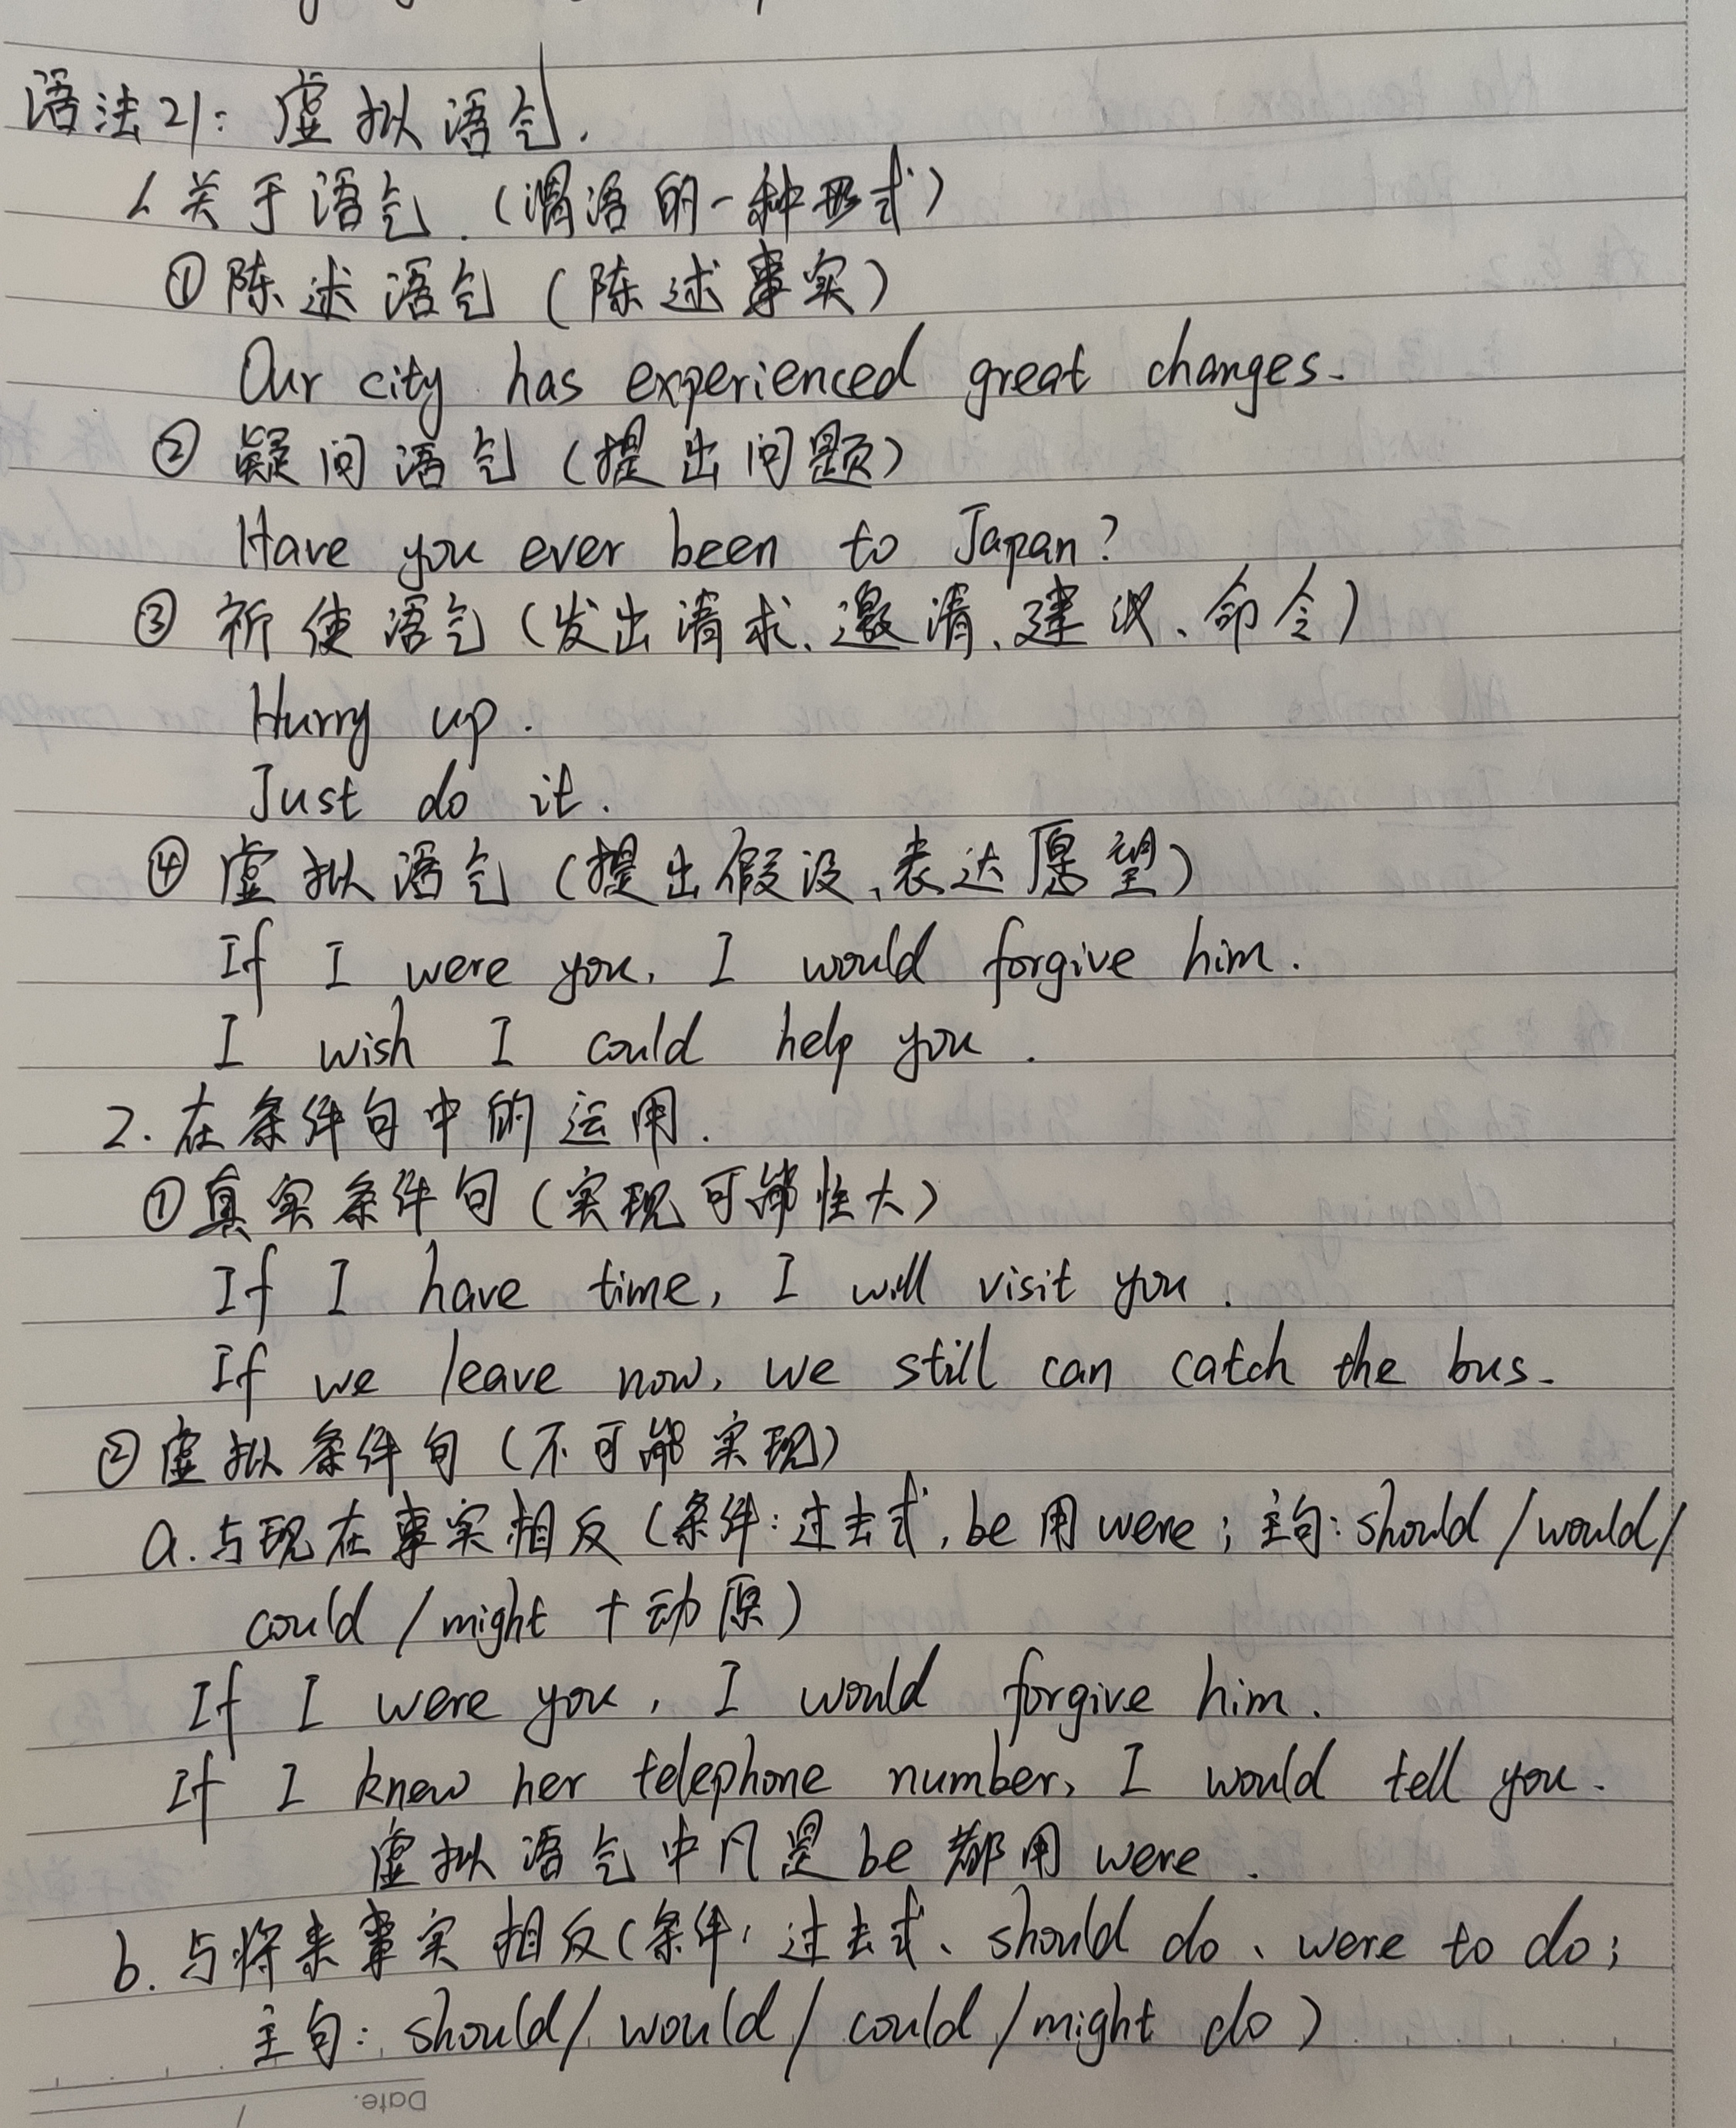 语法21：虚拟语气.
1.关于语气.（谓语的一种形式）
①陈述语气（陈述事实）
Our city has experienced great changes.
②疑问语气（提出问题）
Have you ever been to Japan?
③祈使语气（发出请求、邀请、建议、命令）
Hurry up.
Just do it.
④虚拟语气（提出假设、表达愿望）
If I were you, I would forgive him.
I wish I could help you.
2.在条件句中的运用.
①真实条件句（实现可能性大）
If I have time, I will visit you.
If we leave now, we still can catch the bus.
②虚拟条件句（不可能实现）
a.与现在事实相反（条件：过去式，be用were；主句：should/would/
could/might+动原）
If I were you, I would forgive him.
If I knew her telephone number, I would tell you.
虚拟语气中凡是be都用were.
b.与将来事实相反（条件：过去式、should do、were to do；
主句：should/would/could/might do）
Date.